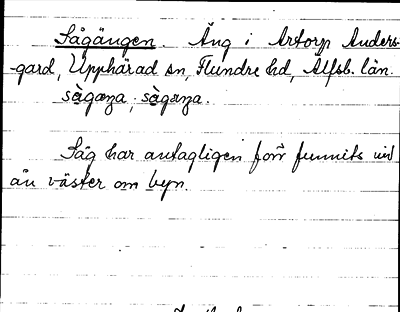 Sågängen. Äng i Artorp Anders-
-gard, Upphärad sn, Flundre hd, Älfsb. län.
Såg har antagligen förr funnits vid
ån väster om byn.